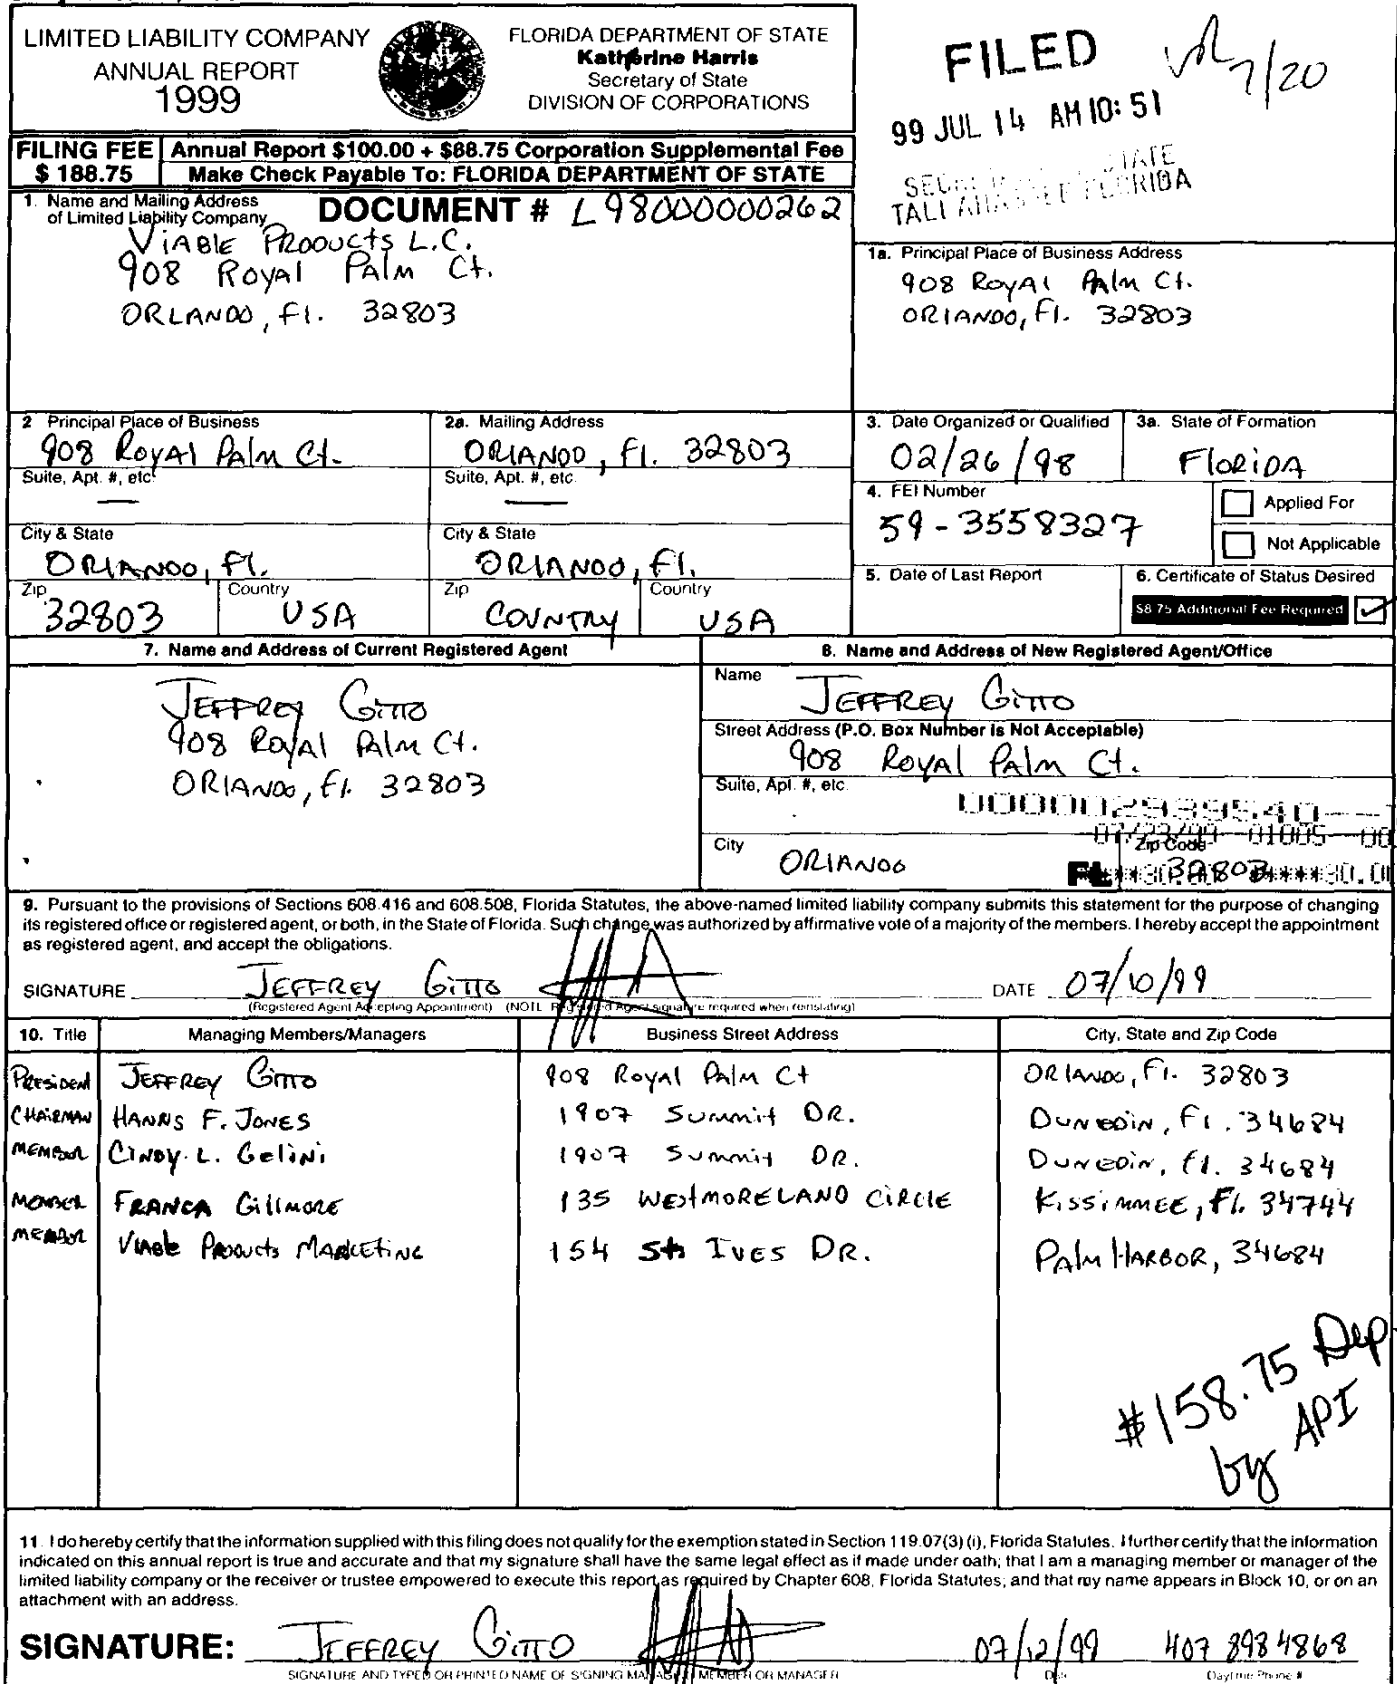 LIMITED LIABILITY COMPANY
ANNUAL REPORT
1999
FLORIDA DEPARTMENT OF STATE
Katherine Harris
Secretary of State
DIVISION OF CORPORATIONS
FILED
7/20
99 JUL 14 AM 10:51
STATE
TALLAHASSEE FLORIDA
FILING FEE
$ 188.75
Annual Report $100.00 + $88.75 Corporation Supplemental Fee
Make Check Payable To: FLORIDA DEPARTMENT OF STATE
1. Name and Mailing Address
of Limited Liability Company
DOCUMENT # L98000000262
VIABLE PRODUCTS L.C.
908 ROYAL PALM Ct.
ORLANDO, Fl. 32803
1a. Principal Place of Business Address
908 ROYAL PALM Ct.
ORLANDO, Fl. 32803
2 Principal Place of Business
908 ROYAL PALM Ct.
Suite, Apt. #, etc.
—
City & State
ORLANDO, Fl.
Zip
32803
Country
USA
2a. Mailing Address
ORLANDO, Fl. 32803
Suite, Apt. #, etc.
—
City & State
ORLANDO, Fl.
Zip
COUNTRY
Country
USA
3. Date Organized or Qualified
02/26/98
3a. State of Formation
FLORIDA
4. FEI Number
59-3558327
Applied For
Not Applicable
5. Date of Last Report
6. Certificate of Status Desired
$8.75 Additional Fee Required
7. Name and Address of Current Registered Agent
JEFFREY GITTO
908 ROYAL PALM Ct.
ORLANDO, Fl. 32803
8. Name and Address of New Registered Agent/Office
Name
JEFFREY GITTO
Street Address (P.O. Box Number is Not Acceptable)
908 ROYAL PALM Ct.
Suite, Apt. #, etc.
000002939540--
07/23/99--01005--00
City
ORLANDO
FL
Zip Code
32803
9. Pursuant to the provisions of Sections 608.416 and 608.508, Florida Statutes, the above-named limited liability company submits this statement for the purpose of changing
its registered office or registered agent, or both, in the State of Florida. Such change was authorized by affirmative vote of a majority of the members. I hereby accept the appointment
as registered agent, and accept the obligations.
SIGNATURE JEFFREY GITTO DATE 07/10/99
(Registered Agent Accepting Appointment) (NOTE Registered Agent signature required when reinstating)
10. Title Managing Members/Managers Business Street Address City, State and Zip Code
PRESIDENT JEFFREY GITTO 908 ROYAL PALM Ct ORLANDO, Fl. 32803
CHAIRMAN HANNS F. JONES 1907 SUMMIT DR. DUNEDIN, Fl. 34684
MEMBER CINDY L. GELINI 1907 SUMMIT DR. DUNEDIN, Fl. 34684
MEMBER FRANCA GILLMORE 135 WESTMORELAND CIRCLE KISSIMMEE, Fl. 34744
MEMBER VIABLE PRODUCTS MARKETING 154 St IVES DR. PALM HARBOR, 34684
$158.75 Dep
by API
11. I do hereby certify that the information supplied with this filing does not qualify for the exemption stated in Section 119.07(3) (i), Florida Statutes. I further certify that the information
indicated on this annual report is true and accurate and that my signature shall have the same legal effect as if made under oath; that I am a managing member or manager of the
limited liability company or the receiver or trustee empowered to execute this report as required by Chapter 608, Florida Statutes; and that my name appears in Block 10, or on an
attachment with an address.
SIGNATURE: JEFFREY GITTO 07/12/99 407 8984868
SIGNATURE AND TYPED OR PRINTED NAME OF SIGNING MANAGING MEMBER OR MANAGER Date Daytime Phone #